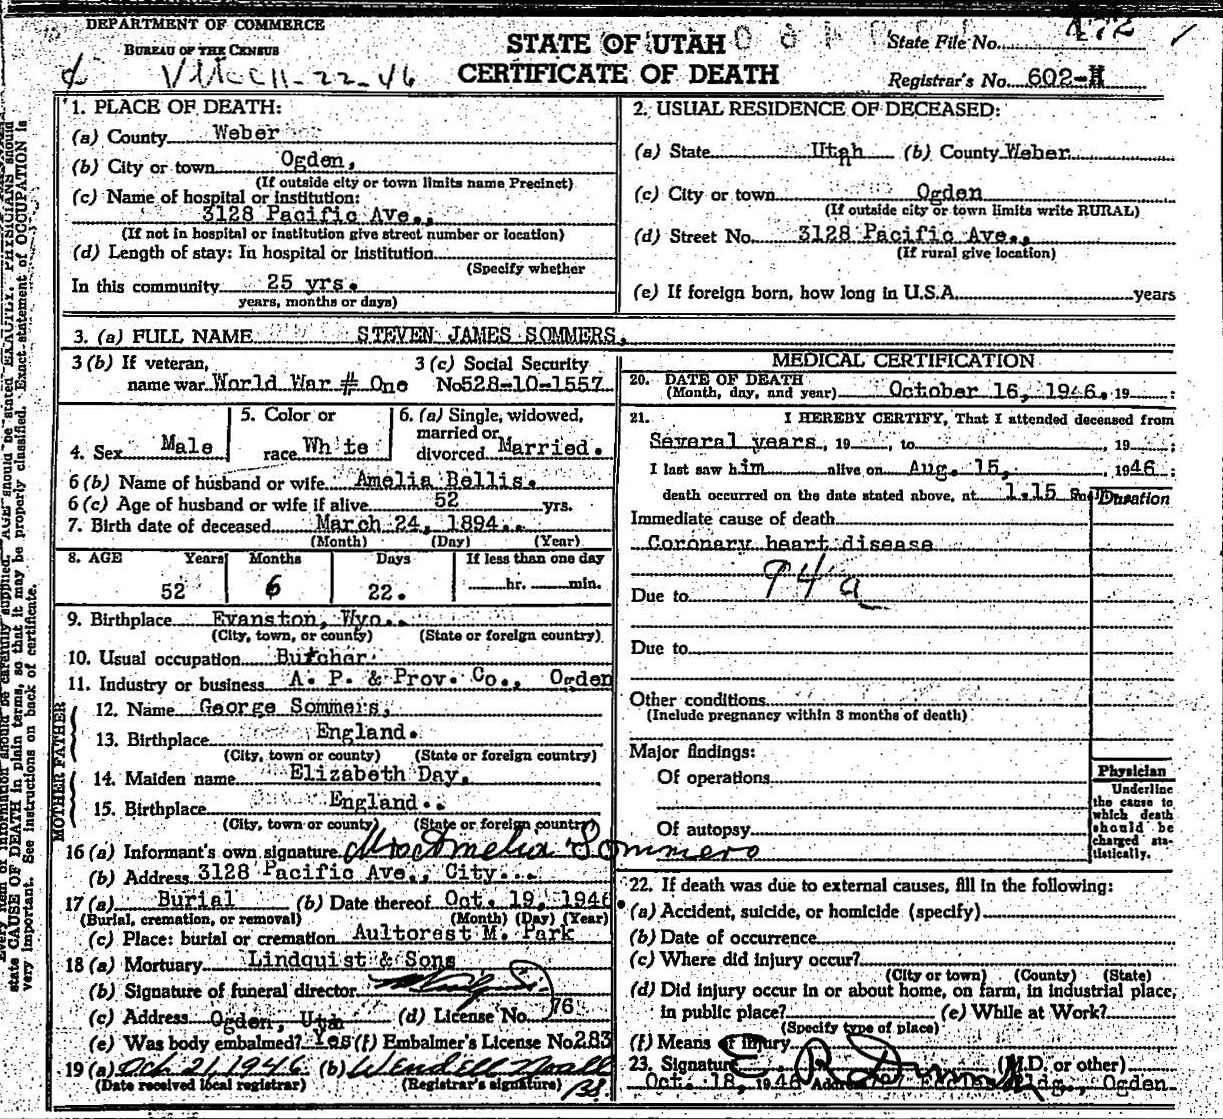 DEPARTMENT OF COMMERCE
BUREAU OF THE CENSUS
STATE OF UTAH
CERTIFICATE OF DEATH
State File No. 472
Registrar's No. 602-H
11-22-46
1. PLACE OF DEATH:
(a) County Weber
(b) City or town Ogden,
(If outside city or town limits name Precinct)
(c) Name of hospital or institution:
3128 Pacific Ave.,
(If not in hospital or institution give street number or location)
(d) Length of stay: In hospital or institution
(Specify whether
In this community 25 yrs.
years, months or days)
2. USUAL RESIDENCE OF DECEASED:
(a) State Utah (b) County Weber
(c) City or town Ogden
(If outside city or town limits write RURAL)
(d) Street No. 3128 Pacific Ave.,
(If rural give location)
(e) If foreign born, how long in U.S.A. years
3. (a) FULL NAME STEVEN JAMES SOMMERS,
3 (b) If veteran, 3 (c) Social Security
name war World War # One No 528-10-1557
4. Sex Male
5. Color or
race White
6. (a) Single, widowed,
married or
divorced Married.
6 (b) Name of husband or wife Amelia Bellis.
6 (c) Age of husband or wife if alive 52 yrs.
7. Birth date of deceased March 24, 1894.
(Month) (Day) (Year)
8. AGE Years Months Days If less than one day
52 6 22. hr. min.
9. Birthplace Evanston, Wyo..
(City, town, or county) (State or foreign country)
10. Usual occupation Butcher
11. Industry or business A. P. & Prov. Co., Ogden
FATHER
12. Name George Sommers,
13. Birthplace England.
(City, town or county) (State or foreign country)
MOTHER
14. Maiden name Elizabeth Day.
15. Birthplace England..
(City, town or county) (State or foreign country)
16 (a) Informant's own signature Mrs Amelia Sommers
(b) Address 3128 Pacific Ave., City...
17 (a) Burial (b) Date thereof Oct. 19, 1946.
(Burial, cremation, or removal) (Month) (Day) (Year)
(c) Place: burial or cremation Aultorest M. Park
18 (a) Mortuary Lindquist & Sons
(b) Signature of funeral director
(c) Address Ogden, Utah (d) License No. 76
(e) Was body embalmed? Yes (f) Embalmer's License No 283
19 (a) Oct 21, 1946 (b) Wendell
(Date received local registrar) (Registrar's signature)
MEDICAL CERTIFICATION
20. DATE OF DEATH
(Month, day, and year) October 16, 1946. 19 :
21. I HEREBY CERTIFY, That I attended deceased from
Several years, 19 , to , 19 ;
I last saw him alive on Aug. 15, , 1946 ;
death occurred on the date stated above, at 1.15 a m.
Duration
Immediate cause of death
Coronary heart disease
94a
Due to
Due to
Other conditions
(Include pregnancy within 3 months of death)
Major findings:
Of operations
Of autopsy
Physician
Underline
the cause to
which death
should be
charged sta-
tistically.
22. If death was due to external causes, fill in the following:
(a) Accident, suicide, or homicide (specify)
(b) Date of occurrence
(c) Where did injury occur?
(City or town) (County) (State)
(d) Did injury occur in or about home, on farm, in industrial place,
in public place? (e) While at Work?
(Specify type of place)
(f) Means of injury
23. Signature E R (M.D. or other)
Oct. 18, 1946 Address Eccles Bldg., Ogden
Every item of information should be carefully supplied. AGE should be stated EXACTLY. PHYSICIANS should
state CAUSE OF DEATH in plain terms, so that it may be properly classified. Exact statement of OCCUPATION is
very important. See instructions on back of certificate.